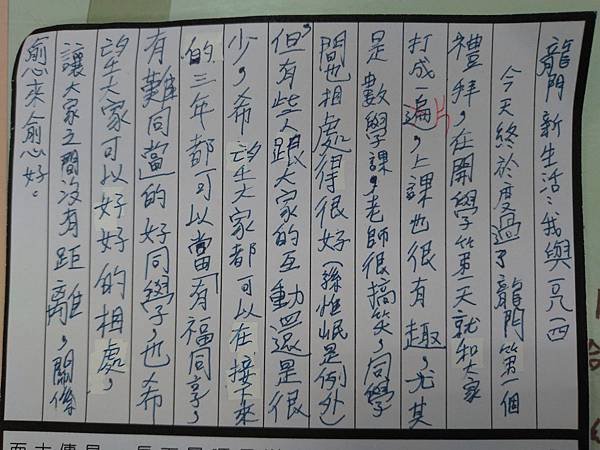 龍門新生活：我與一百四
今天終於度過了龍門第一個
禮拜，在開學第一天就和大家
打成一遍片，上課也很有趣，尤其
是數學課，老師很搞笑，同學
間也相處得很好（孫惟岷是例外）
但，有些人跟大家的互動還是很
少，希望大家都可以在接下來
的三年都可以當「有福同享，
有難同當」的好同學，也希
望大家可以好好的相處，
讓大家之間沒有距離，關係
愈來愈好。